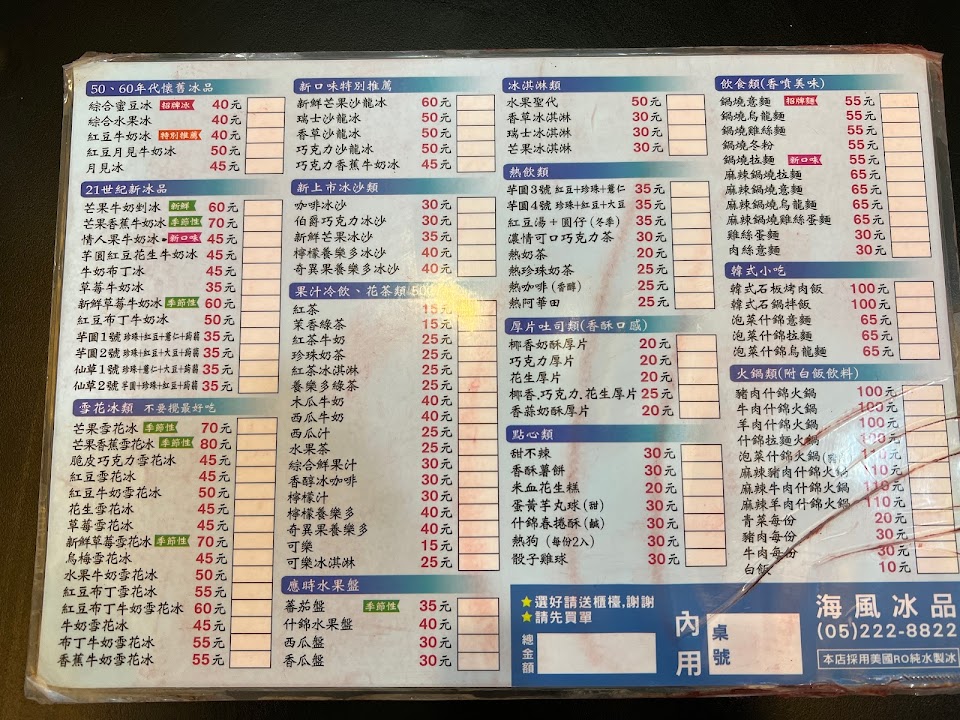 50、60年代懷舊冰品
綜合蜜豆冰 招牌冰 40元
綜合水果冰 40元
紅豆牛奶冰 特別推薦 40元
紅豆月見牛奶冰 50元
月見冰 45元
21世紀新冰品
芒果牛奶剉冰 新鮮 60元
芒果香蕉牛奶冰 季節性 70元
情人果牛奶冰 新口味 45元
芋圓紅豆花生牛奶冰 45元
牛奶布丁冰 45元
草莓牛奶冰 35元
新鮮草莓牛奶冰 季節性 60元
紅豆布丁牛奶冰 50元
芋圓1號 珍珠+紅豆+薏仁+蒟蒻 35元
芋圓2號 珍珠+紅豆+大豆+蒟蒻 35元
仙草1號 珍珠+紅豆+大豆+蒟蒻 35元
仙草2號 芋圓+珍珠+紅豆+蒟蒻 35元
雪花冰類 不要攪最好吃
芒果雪花冰 季節性 70元
芒果香蕉雪花冰 季節性 80元
脆皮巧克力雪花冰 45元
紅豆雪花冰 45元
紅豆牛奶雪花冰 50元
花生雪花冰 45元
草莓雪花冰 45元
新鮮草莓雪花冰 季節性 70元
烏梅雪花冰 45元
水果牛奶雪花冰 50元
紅豆布丁雪花冰 55元
紅豆布丁牛奶雪花冰 60元
牛奶雪花冰 45元
布丁牛奶雪花冰 55元
香蕉牛奶雪花冰 55元
新口味特別推薦
新鮮芒果沙龍冰 60元
瑞士沙龍冰 50元
香草沙龍冰 50元
巧克力沙龍冰 50元
巧克力香蕉牛奶冰 45元
新上市冰沙類
咖啡冰沙 30元
伯爵巧克力冰沙 30元
新鮮芒果冰沙 35元
檸檬養樂多冰沙 40元
奇異果養樂多冰沙 40元
果汁冷飲、花茶類 500
紅茶 15元
茉香綠茶 15元
紅茶牛奶 25元
珍珠奶茶 25元
紅茶冰淇淋 25元
養樂多綠茶 25元
木瓜牛奶 40元
西瓜牛奶 40元
西瓜汁 25元
水果茶 25元
綜合鮮果汁 30元
香醇冰咖啡 30元
檸檬汁 30元
檸檬養樂多 40元
奇異果養樂多 40元
可樂 15元
可樂冰淇淋 25元
應時水果盤
蕃茄盤 季節性 35元
什錦水果盤 40元
西瓜盤 30元
香瓜盤 30元
冰淇淋類
水果聖代 50元
香草冰淇淋 30元
瑞士冰淇淋 30元
芒果冰淇淋 30元
熱飲類
芋圓3號 紅豆+珍珠+薏仁 35元
芋圓4號 珍珠+紅豆+大豆 35元
紅豆湯+圓仔(冬季) 35元
濃情可口巧克力茶 30元
熱奶茶 25元
熱珍珠奶茶 25元
熱咖啡(香醇) 25元
熱阿華田 25元
厚片吐司類(香酥口感)
椰香奶酥厚片 20元
巧克力厚片 20元
花生厚片 20元
椰香.巧克力.花生厚片 25元
香蒜奶酥厚片 20元
點心類
甜不辣 30元
香酥薯餅 30元
米血花生糕 20元
蛋黃芋丸球(甜) 30元
什錦春捲酥(鹹) 30元
熱狗(每份2入) 30元
骰子雞球 30元
飲食類(香噴美味)
鍋燒意麵 招牌麵 55元
鍋燒烏龍麵 55元
鍋燒雞絲麵 55元
鍋燒冬粉 55元
鍋燒拉麵 新口味 55元
麻辣鍋燒拉麵 65元
麻辣鍋燒意麵 65元
麻辣鍋燒烏龍麵 65元
麻辣鍋燒雞絲蛋麵 65元
雞絲蛋麵 30元
肉絲意麵 30元
韓式小吃
韓式石板烤肉飯 100元
韓式石鍋拌飯 100元
泡菜什錦意麵 65元
泡菜什錦拉麵 65元
泡菜什錦烏龍麵 65元
火鍋類(附白飯飲料)
豬肉什錦火鍋 100元
牛肉什錦火鍋 100元
羊肉什錦火鍋 100元
什錦拉麵火鍋 100元
泡菜什錦火鍋 110元
麻辣豬肉什錦火鍋 110元
麻辣牛肉什錦火鍋 110元
麻辣羊肉什錦火鍋 110元
青菜每份 20元
豬肉每份 30元
牛肉每份 30元
白飯 10元
★選好請送櫃檯,謝謝
★請先買單
總金額
內用
桌號
海風冰品
(05)222-8822
本店採用美國RO純水製冰